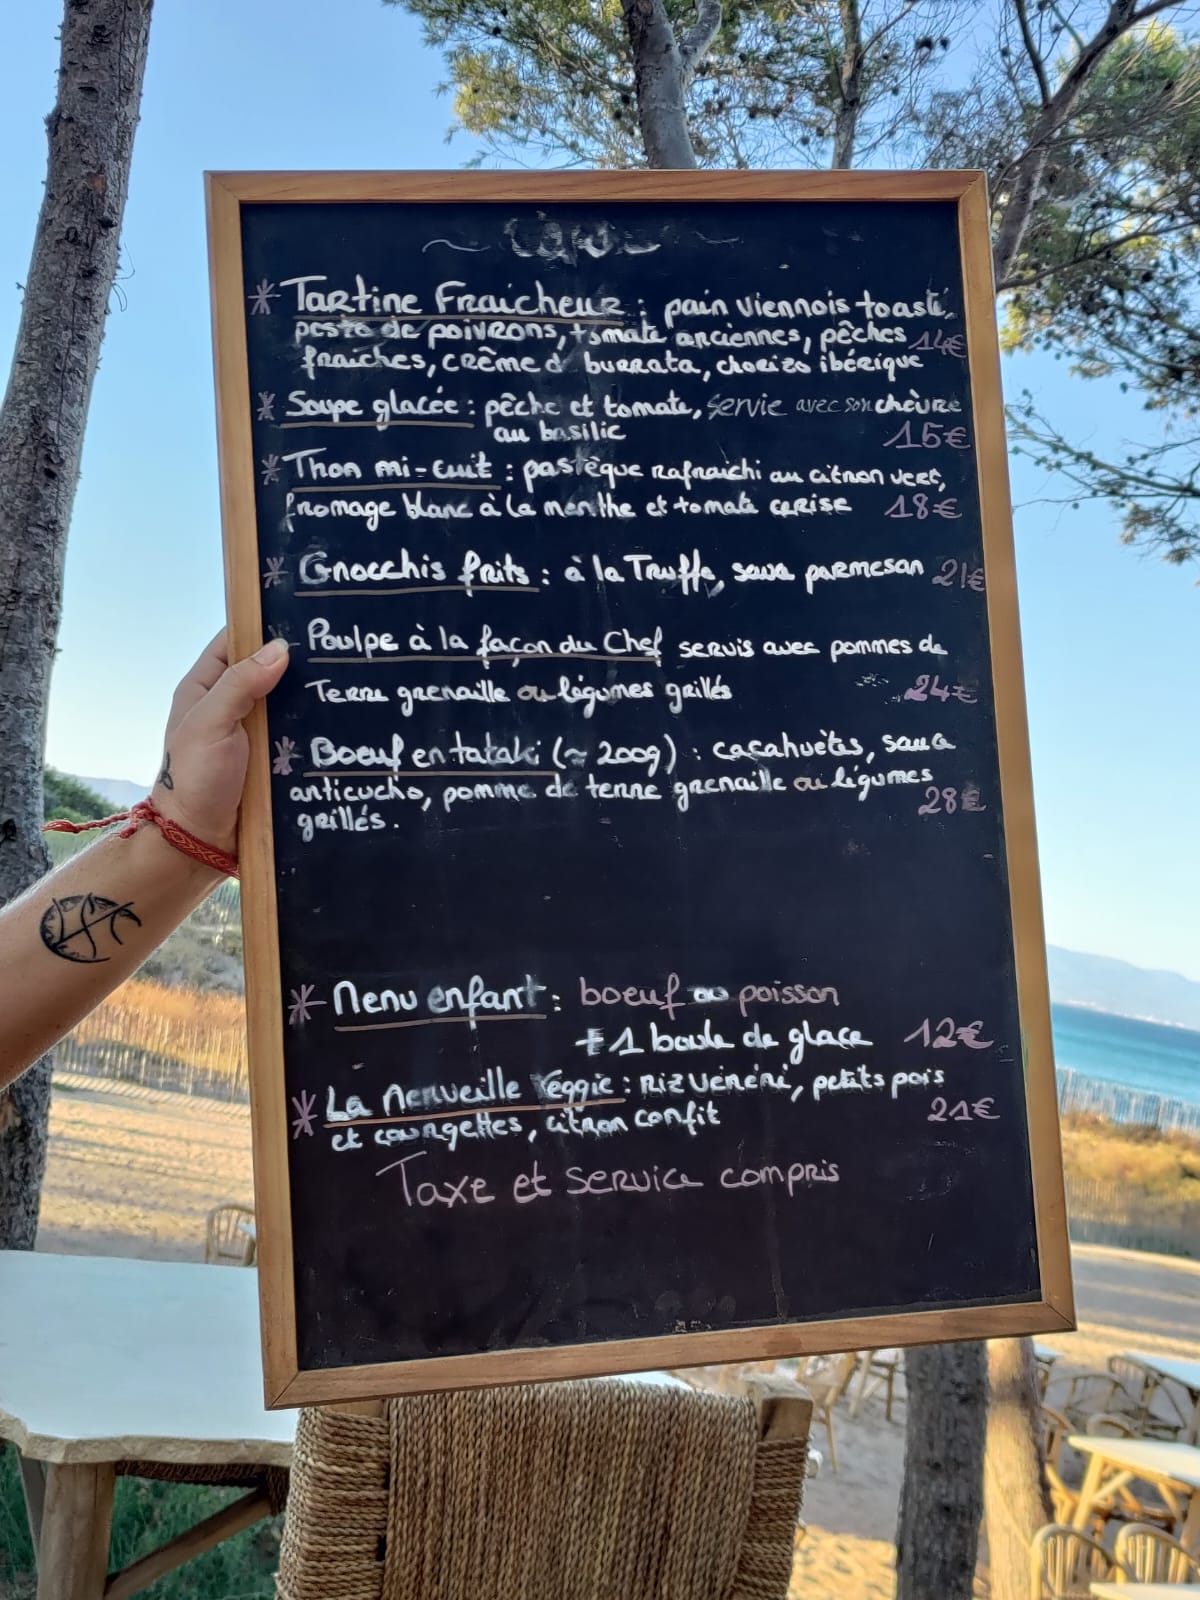 * Tartine Fraicheur : pain viennois toasté,
pesto de poivrons, tomate anciennes, pêches 14€
fraiches, crème d burrata, chorizo ibérique
* Soupe glacée : pêche et tomate, servie avec son chèvre
au basilic 15€
* Thon mi-cuit : pastèque rafraichi au citron vert,
fromage blanc à la menthe et tomate cerise 18€
* Gnocchis frits : à la Truffe, sauce parmesan 21€
* Poulpe à la façon du Chef servis avec pommes de
Terre grenaille ou légumes grillés 24€
* Boeuf en tataki (~ 200g) : cacahuètes, sauce
anticucho, pomme de terre grenaille ou légumes
grillés. 28€
* Menu enfant : boeuf ou poisson
+ 1 boule de glace 12€
* La Merveille Veggie : riz vénéré, petits pois
et courgettes, citron confit 21€
Taxe et service compris